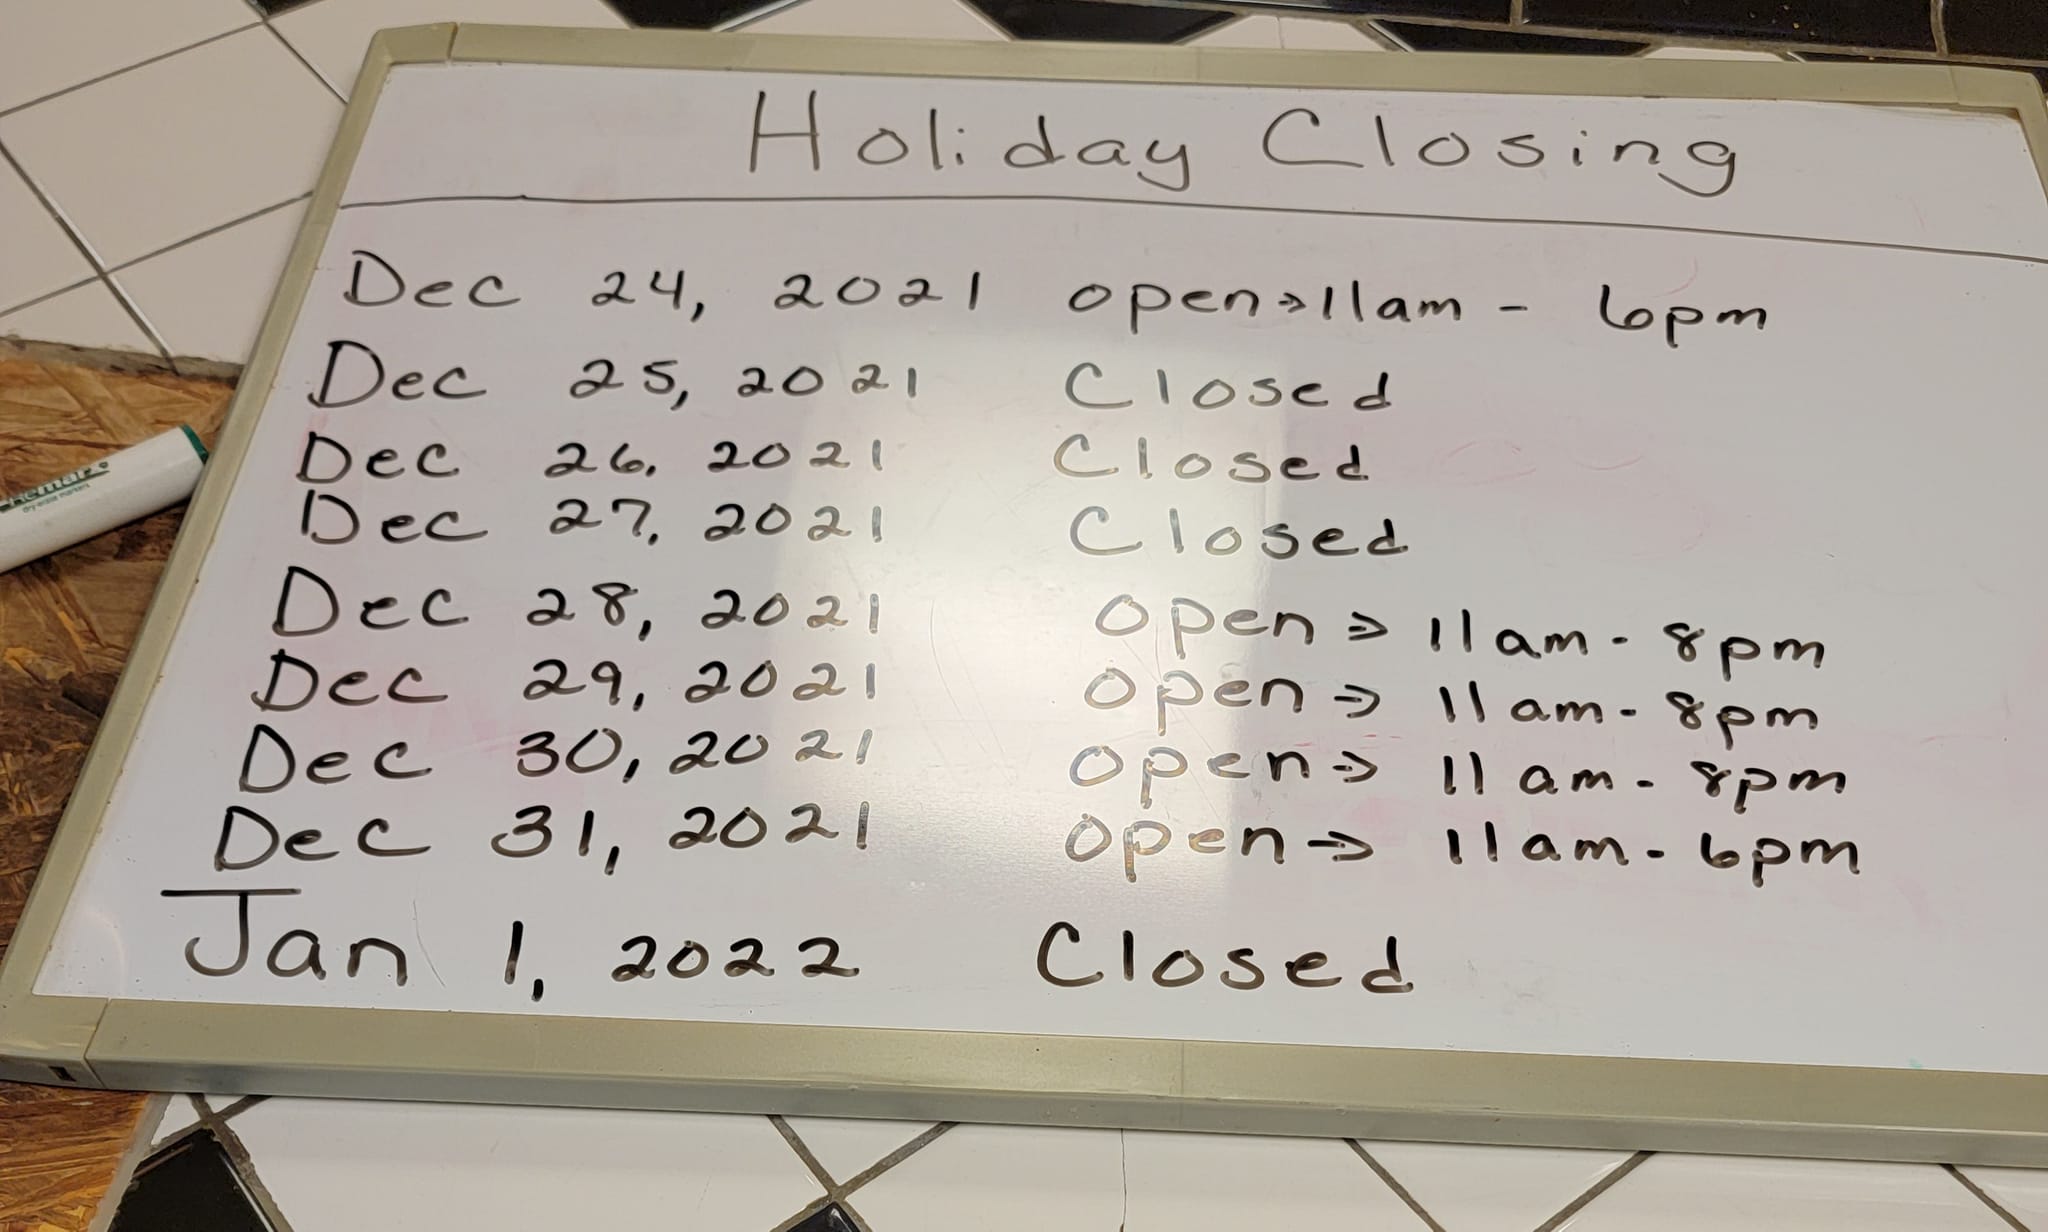 Holiday Closing
Dec 24, 2021 open → 11am - 6pm
Dec 25, 2021 Closed
Dec 26, 2021 Closed
Dec 27, 2021 Closed
Dec 28, 2021 open ⇒ 11am - 8pm
Dec 29, 2021 open ⇒ 11am - 8pm
Dec 30, 2021 open ⇒ 11am - 8pm
Dec 31, 2021 open ⇒ 11am - 6pm
Jan 1, 2022 Closed
dry-erase markers